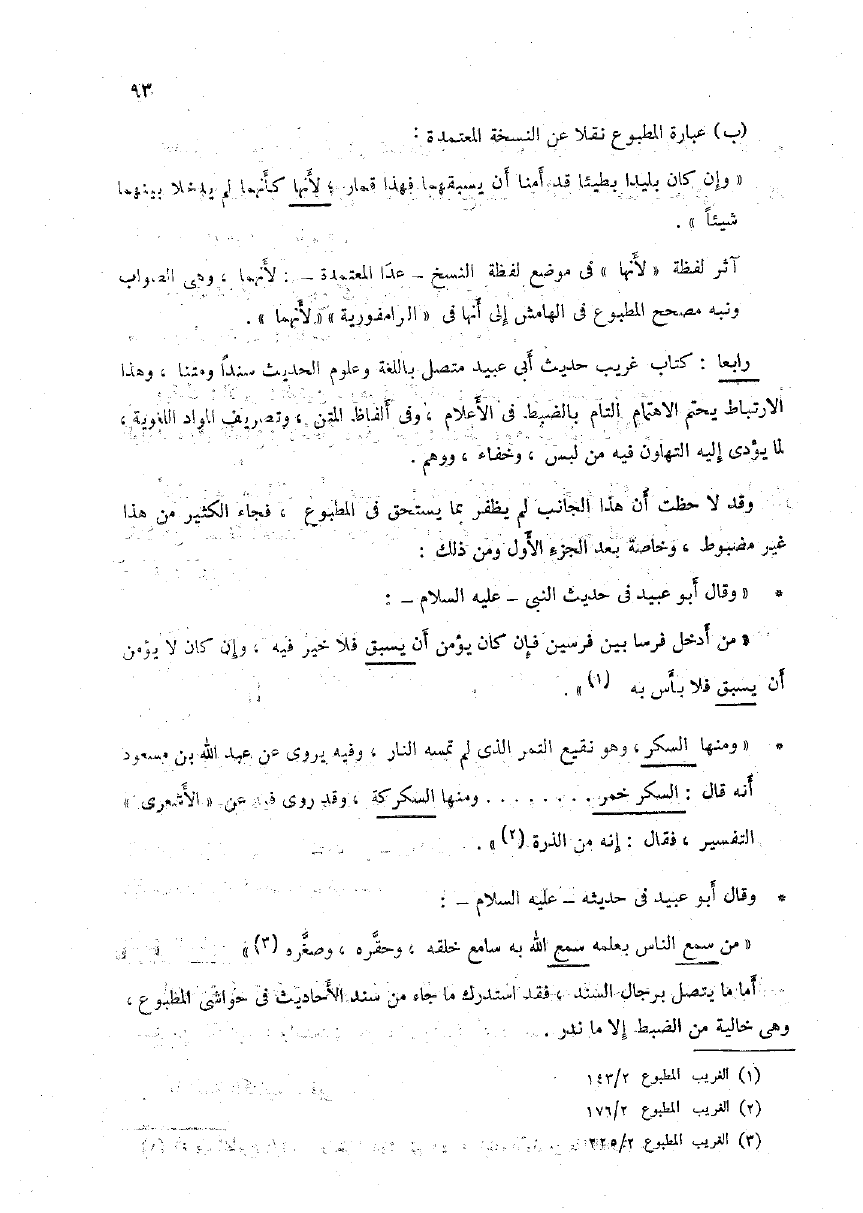 ٩٣
(ب) عبارة المطبوع نقلا عن النسخة المعتمدة :
« وإن كان بليدا بطيئا قد أمنا أن يسبقهما فهذا قمار ؛ لأَنها كأَنهما لم يدخلا بينهما
شيئاً » .
آثر لفظة « لأَنها » فى موضع لفظة النسخ – عدَا المعتمدة – : لأَنهما ، وهى الصواب
ونبه مصحح المطبوع فى الهامش إلى أنها فى « الرامفورية » « لأنهما » .
رابعا : كتاب غريب حديث أبى عبيد متصل باللغة وعلوم الحديث سنداً ومتنا ، وهذا
الارتباط يحتم الاهتمام التام بالضبط فى الأَعلام ، وفى أَلفاظ المتن ، وتصريف المواد اللغوية ،
لما يؤدى إليه التهاون فيه من لبس ، وخفاء ، ووهم .
وقد لا حظت أَن هذا الجانب لم يظفر بما يستحق فى المطبوع ، فجاء الكثير من هذا
غير مضبوط ، وخاصة بعد الجزء الأَول ومن ذلك :
* « وقال أَبو عبيد فى حديث النبى – عليه السلام – :
« من أَدخل فرسا بين فرسين فإن كان يؤمن أَن يسبق فلا خير فيه ، وإن كان لا يؤمن
أَن يسبق فلا بأَس به (١) » .
* « ومنها السكر ، وهو نقيع التمر الذى لم تمسه النار ، وفيه يروى عن عبد الله بن مسعود
أَنه قال : السكر خمر . . . . . . . . ومنها السكركة ، وقد روى فيه عن « الأَشعرى »
التفسير ، فقال : إنه من الذرة (٢) » .
* وقال أَبو عبيد فى حديثه – عليه السلام – :
« من سمع الناس بعلمه سمع الله به سامع خلقه ، وحقَّره ، وصغَّره (٣) »
أَما ما يتصل برجال السند ، فقد استدرك ما جاء من سند الأَحاديث فى حواشى المطبوع ،
وهى خالية من الضبط إلا ما ندر .
(١) الغريب المطبوع ١٤٣/٢
(٢) الغريب المطبوع ١٧٦/٢
(٣) الغريب المطبوع ٢٢٥/٢